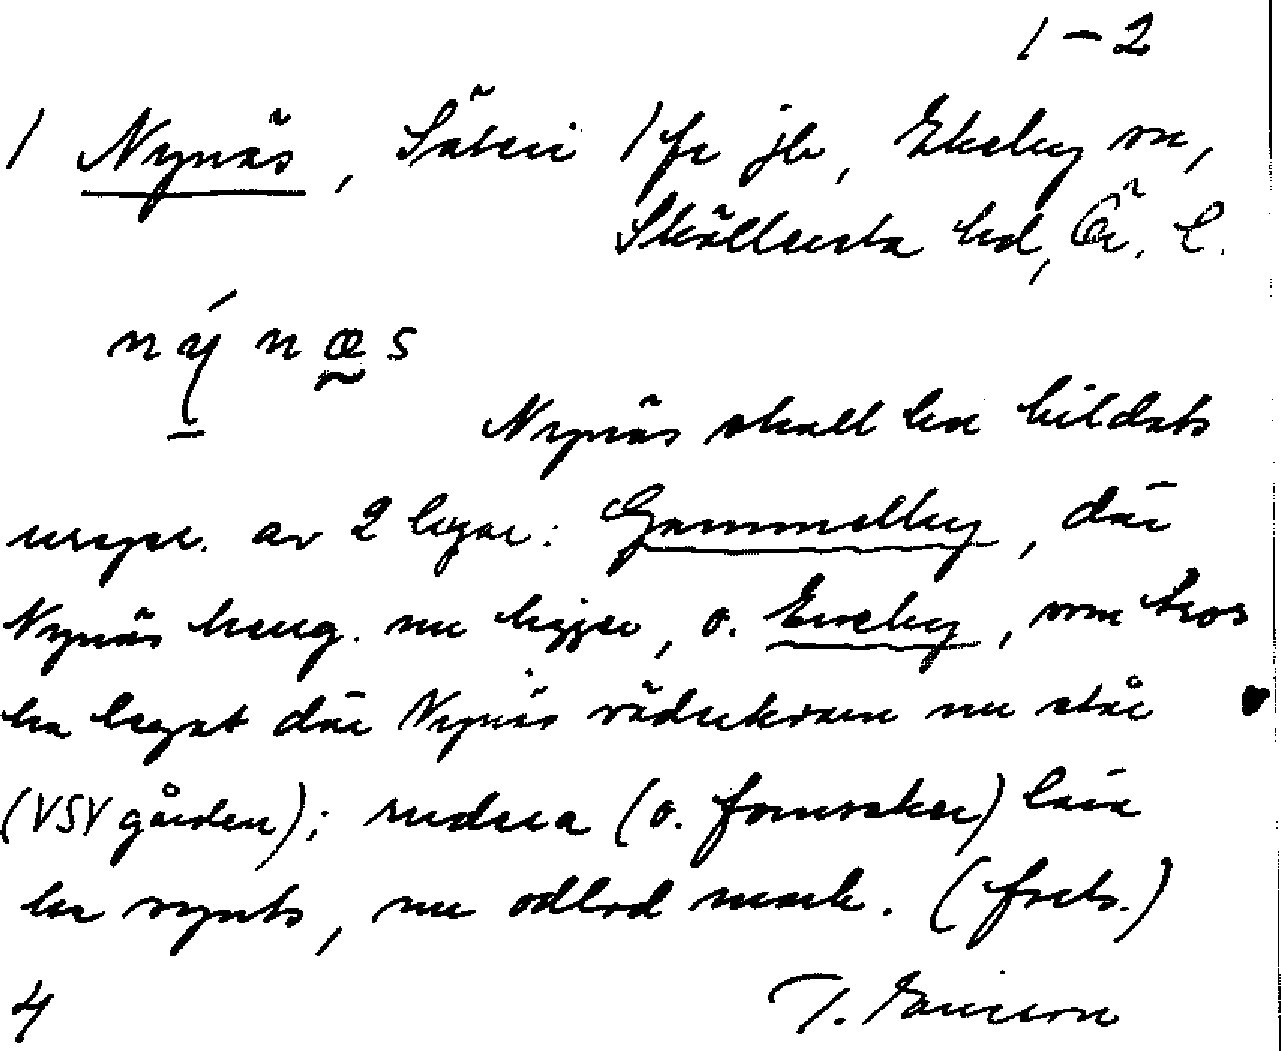 1-2
1 Nynäs, Säteri 1 fr jb, Ekeby sn,
Sköllersta hd, Ör. l.
ný næs
Nynäs skall ha bildats
urspr. av 2 byar: Gammelby, där
Nynäs herrg. nu ligger, o. Eneby, som tros
ha legat där Nynäs rättarekvarn nu står
(VSV gården); rudera (o. fornsaker) lära
ha synts, nu odlad mark. (forts.)
4 T. Ericsson